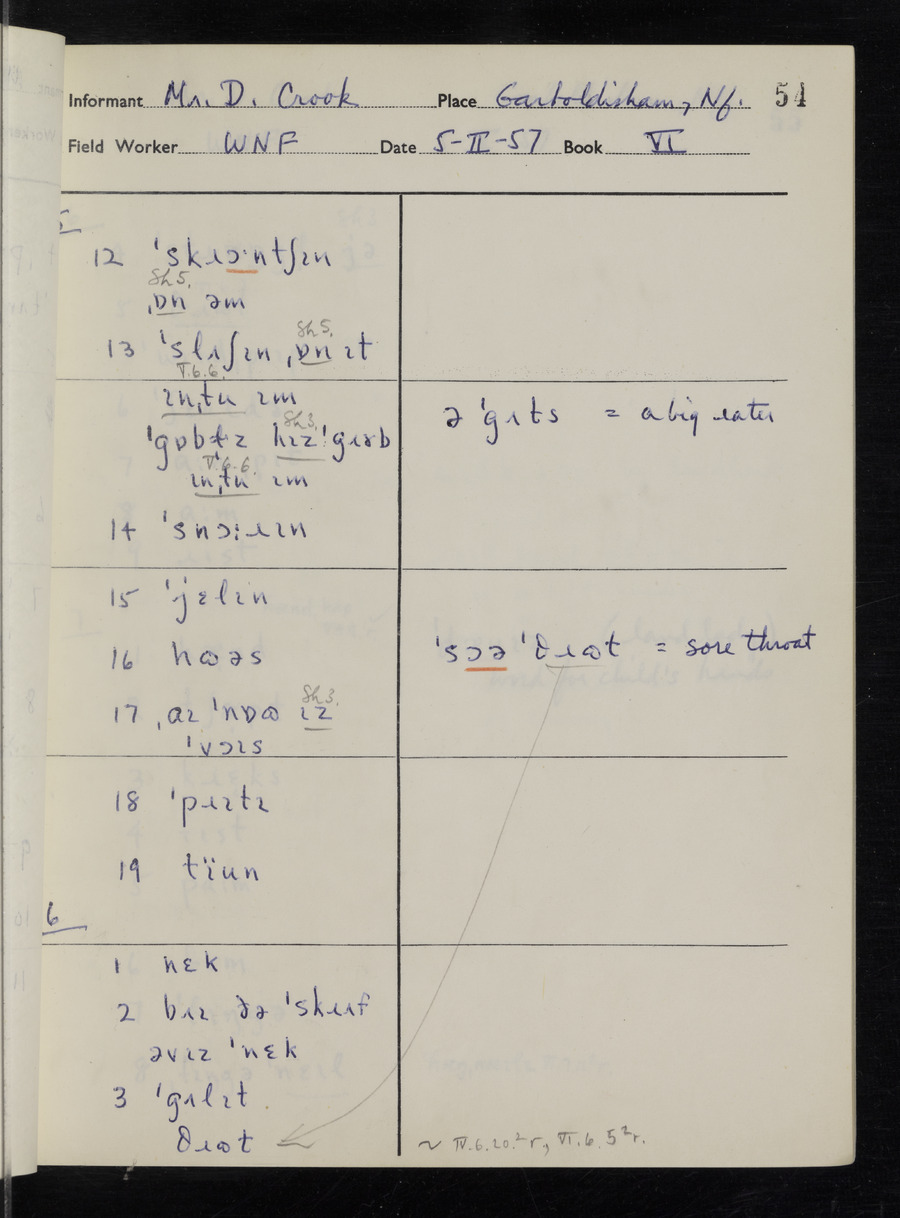 Informant Mr. D. Crook Place Garboldisham, Nf. 54
Field Worker WNF Date 5-II-57 Book VI
5
12 ˈskɹɔ·ntʃɪn
Sh 5.
ˌɒn əm
13 ˈslʌʃɪn ˌɒn ɪt
Sh 5.
V.6.6.
ɪnˌtu ɪm
ˈgɒblɪ hɪzˈgɹʌb
Sh 3.
V.6.6.
ɪnˌtu ɪm
14 ˈsnɔ:ɹɪn
15 ˈjɛlɪn
16 hɷəs
17 ˌaɪ ˈnɒɷ ɪz
Sh 3.
ˈvɔɪs
18 ˈpɹɪtɪ
19 tïun
6
1 nɛk
2 bɪɪ ðə ˈskɹʌf
əvɪz ˈnɛk
3 ˈgʌlɪt
θɹɷt
ə ˈgʌts = a big eater
ˈsɔə ˈθɹɷt = sore throat
~ IV.6.20.²r, VI.6.5²r.